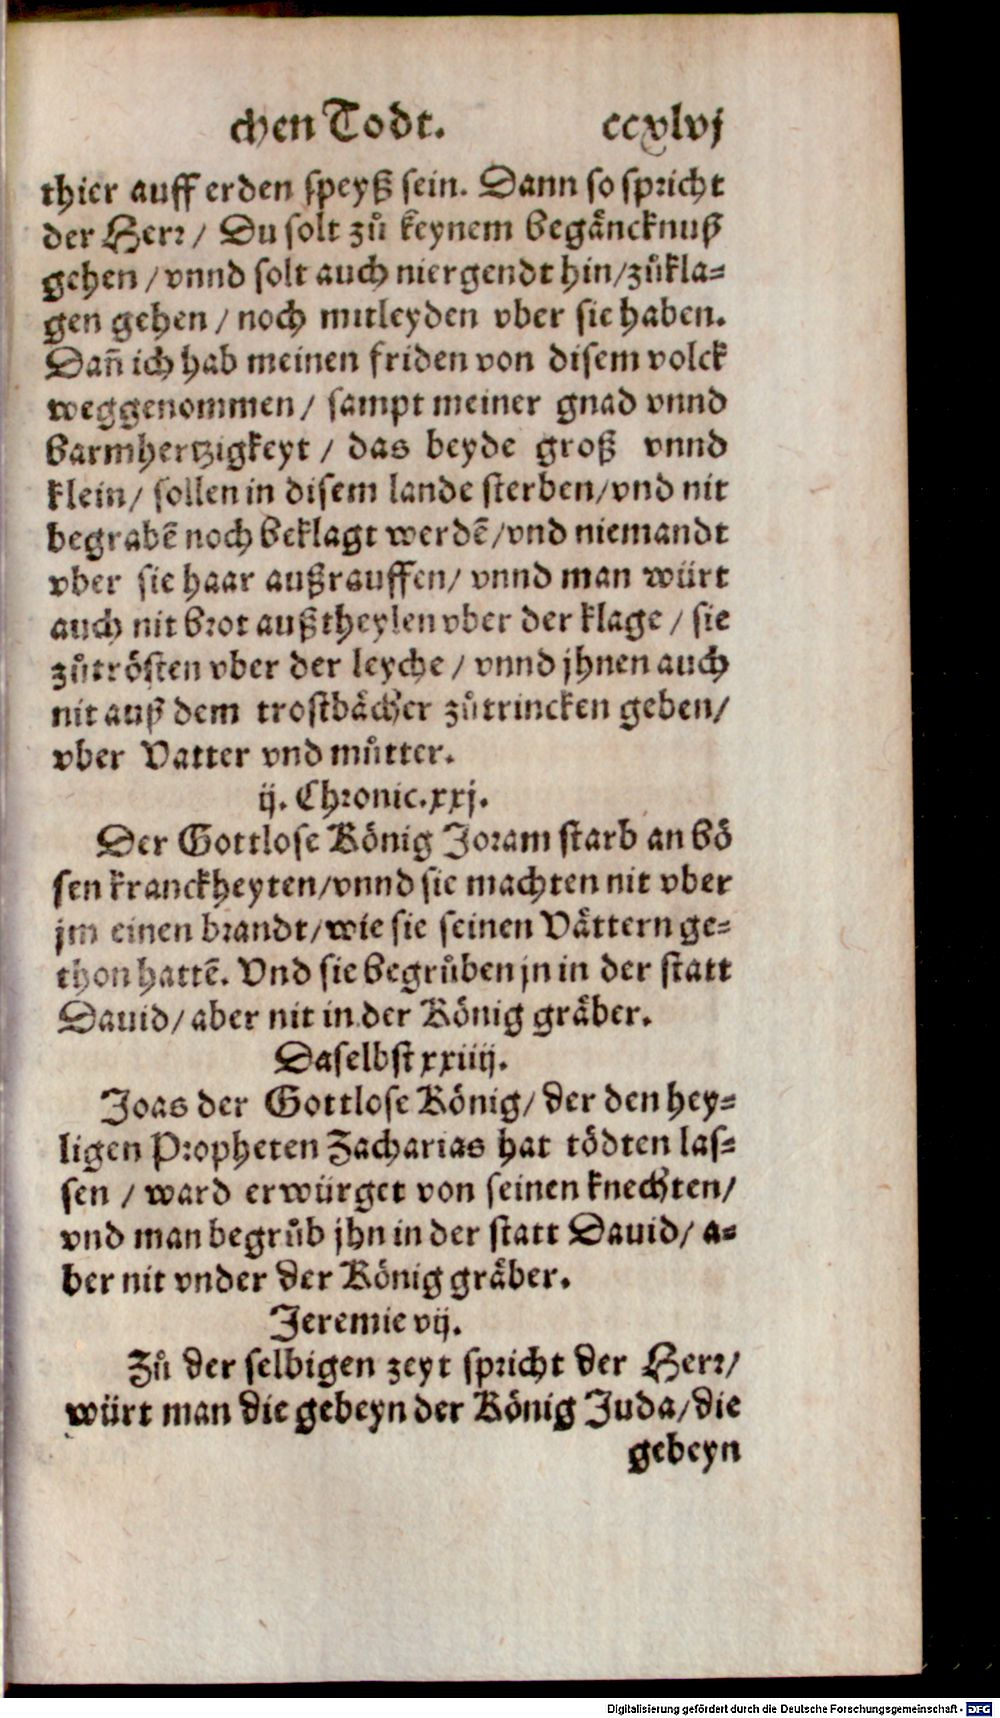 chen Todt. ccxlvj
thier auff erden speyß sein. Dann so spricht
der Herr / Du solt zů keynem begäncknuß
gehen / vnnd solt auch niergendt hin/zůkla=
gen gehen / noch mitleyden vber sie haben.
Dañ ich hab meinen friden von disem volck
weggenommen / sampt meiner gnad vnnd
barmhertzigkeyt / das beyde groß vnnd
klein/ sollen in disem lande sterben/vnd nit
begrabē noch beklagt werdē/vnd niemandt
vber sie haar außrauffen/ vnnd man würt
auch nit brot außtheylen vber der klage / sie
zůtrösten vber der leyche / vnnd jhnen auch
nit auß dem trostbächer zůtrincken geben/
vber Vatter vnd můtter.
ij. Chronic.xxj.
Der Gottlose König Joram starb an bö
sen kranckheyten/vnnd sie machten nit vber
jm einen brandt/wie sie seinen Vättern ge=
thon hattē. Vnd sie begrůben jn in der statt
Dauid/ aber nit in der König gräber.
Daselbst xxiiij.
Joas der Gottlose König/ der den hey=
ligen Propheten Zacharias hat tödten las=
sen / ward erwürget von seinen knechten/
vnd man begrůb jhn in der statt Dauid/ a=
ber nit vnder der König gräber.
Jeremie vij.
Zů der selbigen zeyt spricht der Herr/
würt man die gebeyn der König Juda/die
gebeyn
Digitalisierung gefördert durch die Deutsche Forschungsgemeinschaft - DFG